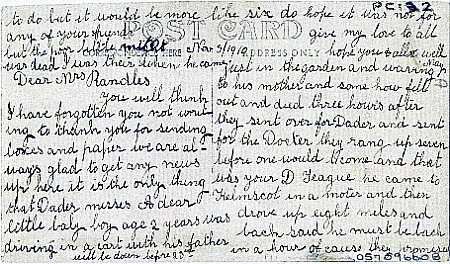 PC:32
to do but it would be more like six do hope it was not for
any of your friends give my love to all
but the poor little mite hope you all well
was dead I was their when he came
May
POST CARD
Nov 5/1919
ADDRESS ONLY
Dear Mrs Randles
you will think
I have forgotten you not wri
ing to thank you for sending
boxes and paper we are al-
ways glad to get any news
up here it is the only thing
that Dader misses A dear
little baby boy age 2 years was
driving in a cart with his father
will be down before
just in the garden and waving
to his mother and some how fell
out and died three hours after
they sent over for Dader and sent
for the Docter they rang up seven
before one would come and that
was your D Teague he came to
Kelmscot in a moter and then
drove up eight miles and
back said he must be back
in a hour of cause they promised
057696608